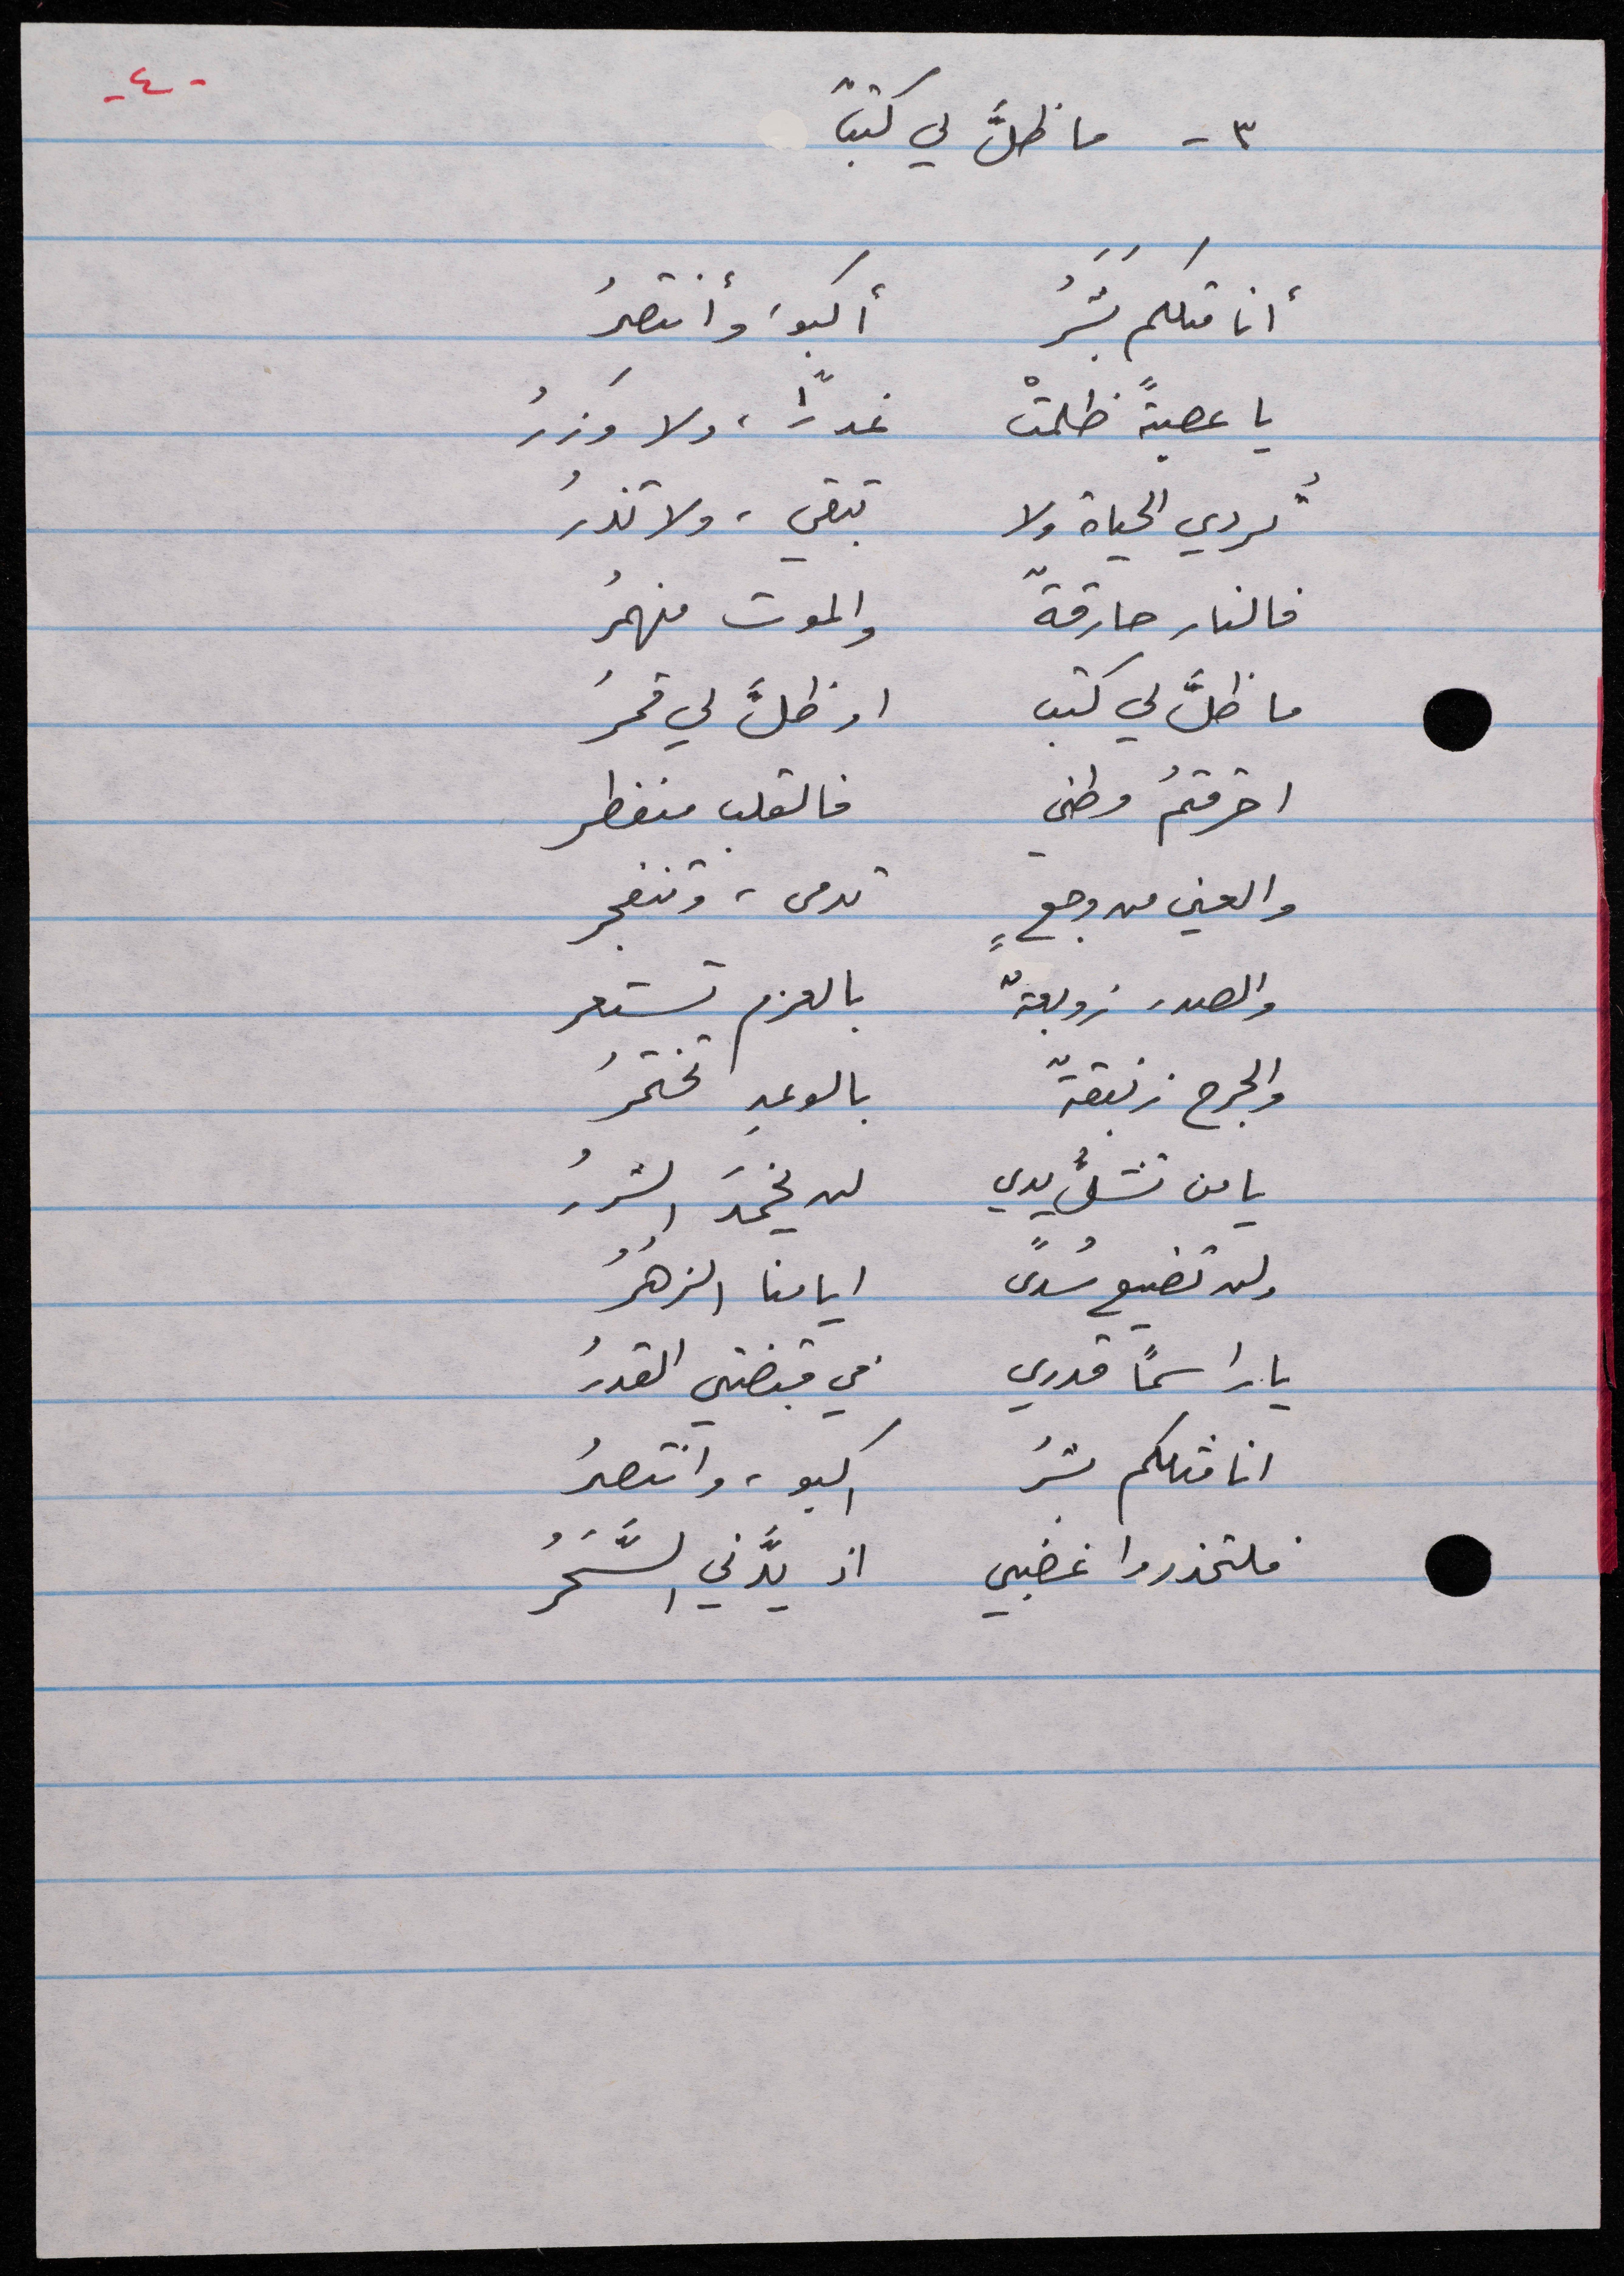 -٤-
٣- ما ظلَّ لي كتبٌ
أنا مثلكم بَشَرُ أكبو، وأنتصرُ
يا عصبةً ظلمتْ غدرًا، ولا وَزرُ
تُردي الحياة ولا تبقي، ولا تذرُ
فالنار حارقةٌ والموت منهمرُ
ما ظلَّ لي كتب او ظلَّ لي قمرُ
احرقتمُ وطني فالقلب منفطر
والعين من وجعٍ تدمى، وتنفجر
والصدر زوبعةٌ بالعزم تستعر
والجرح زنبقةٌ بالوعدِ تختمرُ
يا من تشلُّ يدي لن يخمدَ الشررُ
ولن تضيع سُدىً ايامنا الزهُرُ
يا راسمًا قدري في قبضتي القدرُ
انا مثلكم بشرُ اكبو، وانتصرُ
فلتحذروا غضبي اذ السَّحَرُ